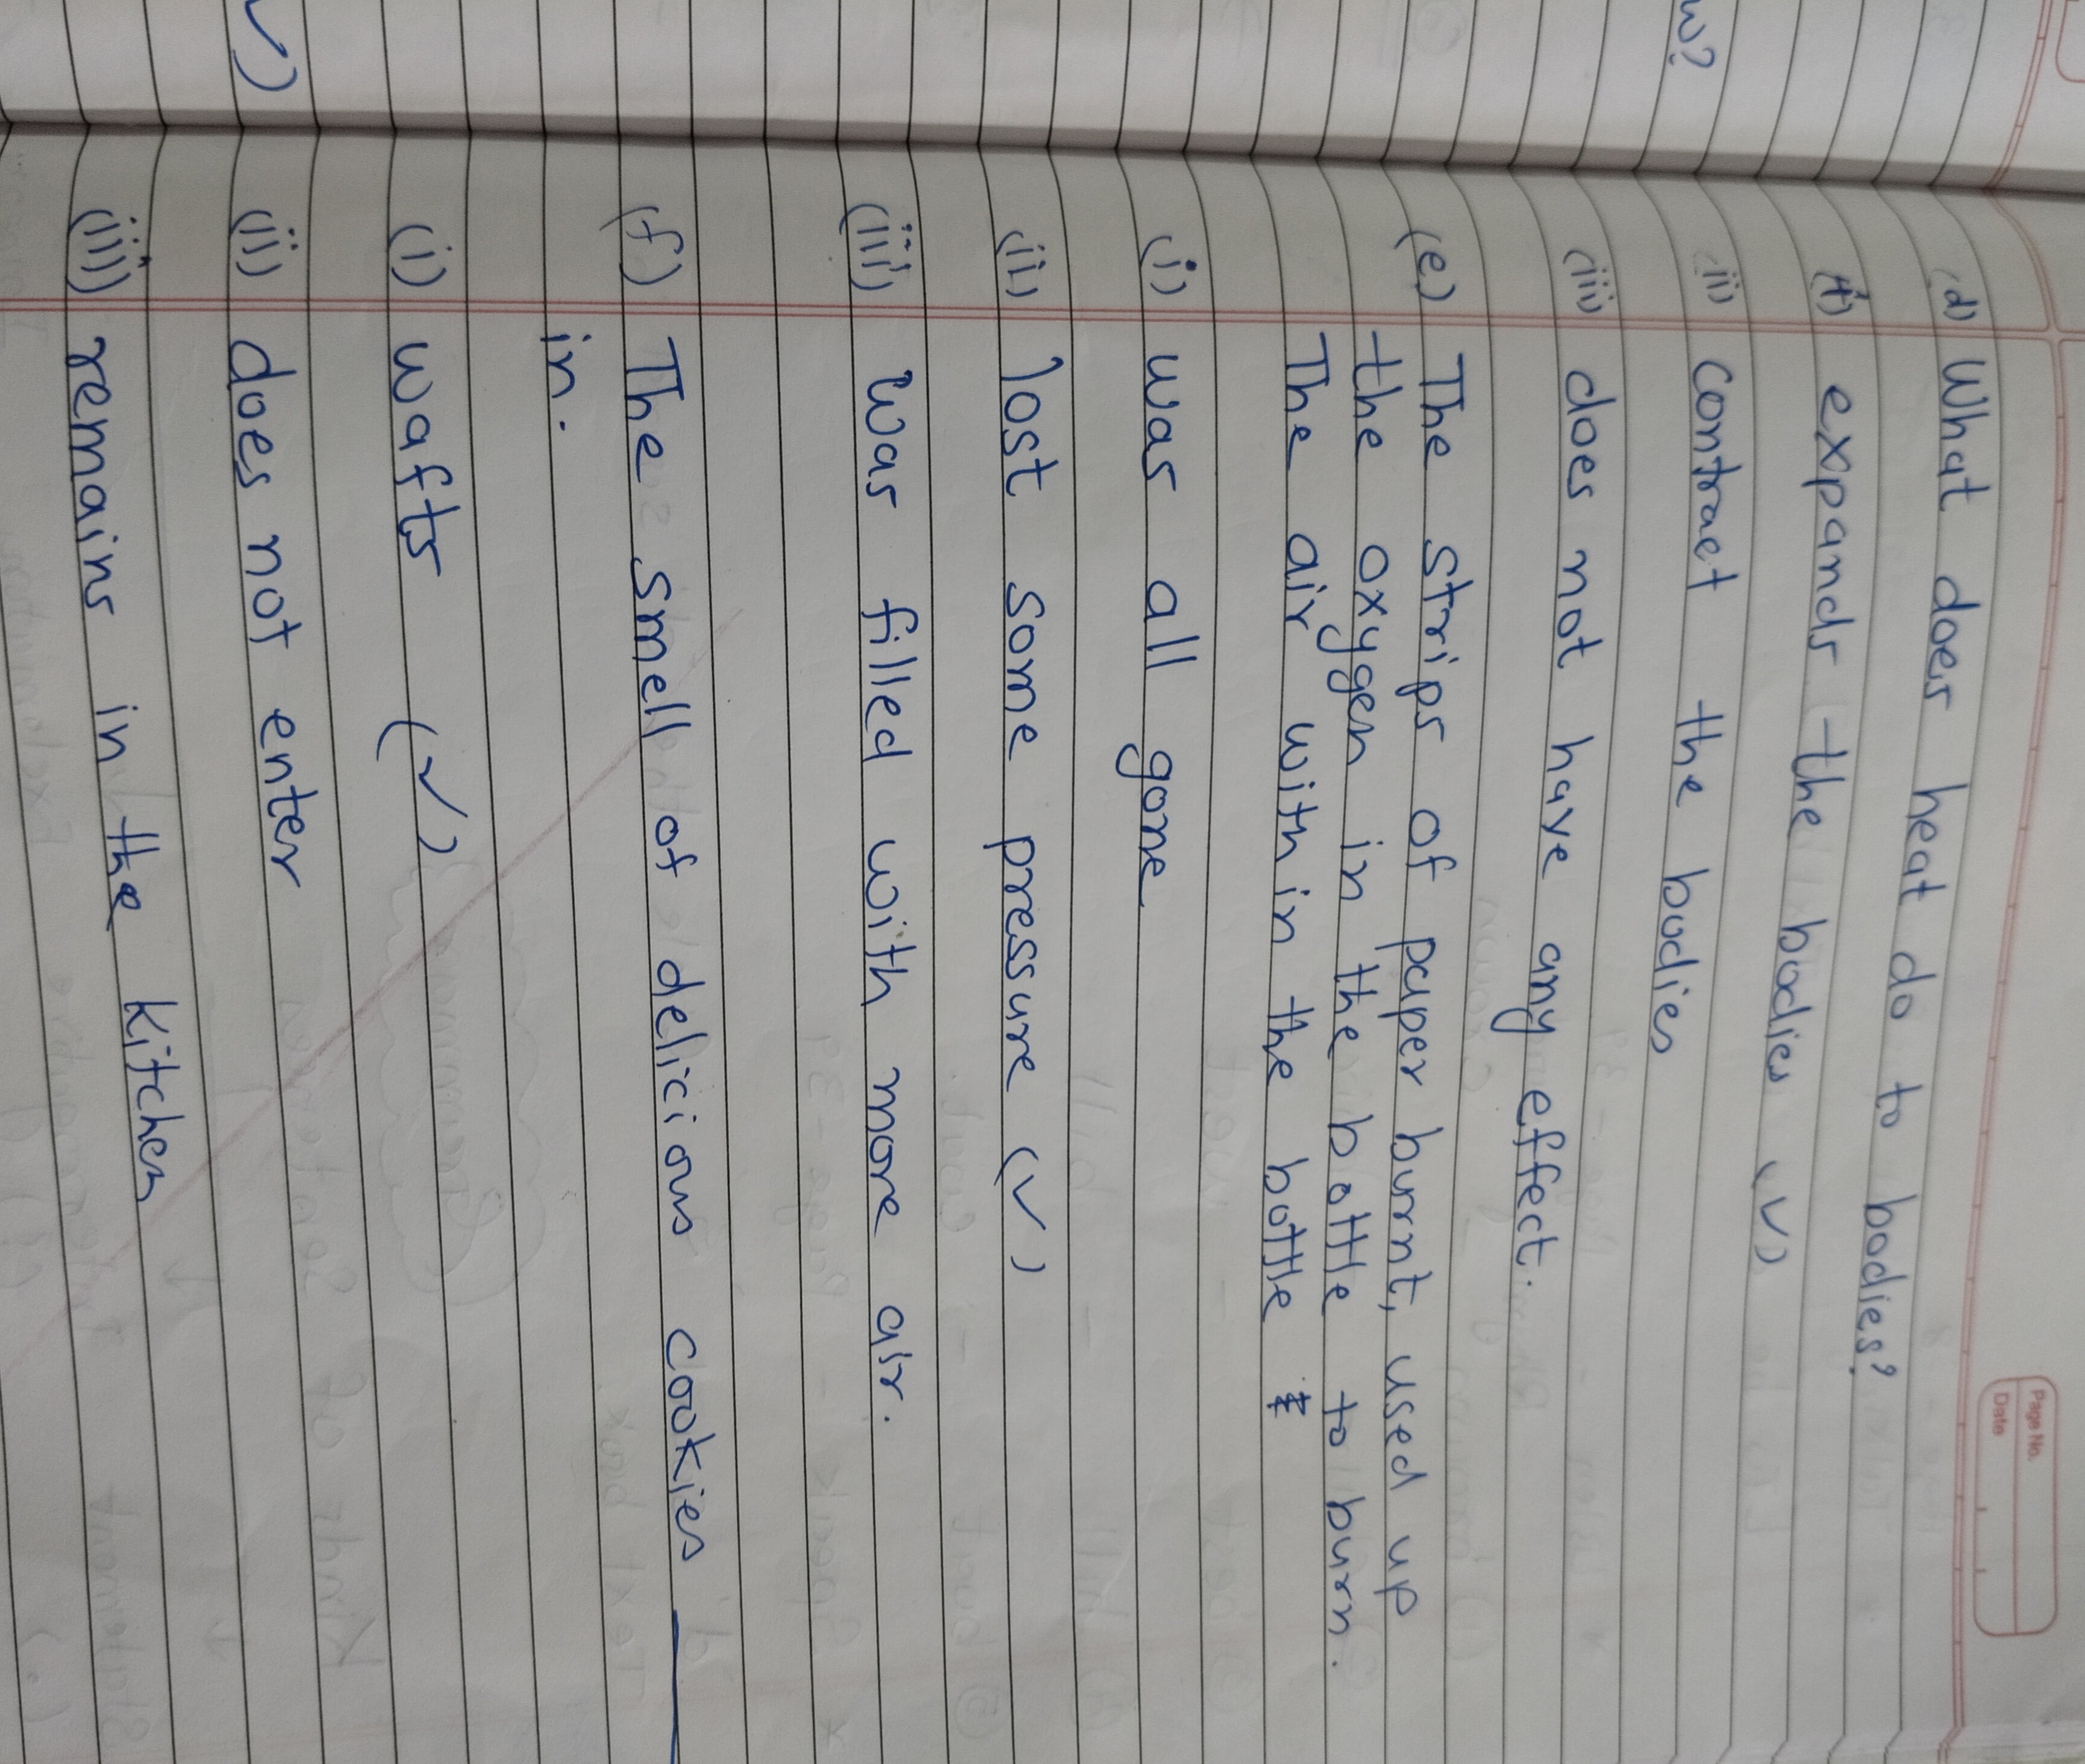 Page No.
Date
w?
(d) What does heat do to bodies?
(i) expands the bodies (✓)
(ii) contract the bodies
(iii) does not have any effect.
(e) The strips of paper burnt, used up
the oxygen in the bottle to burn.
The air within the bottle
(i) was all gone
(ii) lost some pressure (✓)
(iii) was filled with more air.
(f) The smell of delicious cookies ____
in.
(i) wafts (✓)
(ii) does not enter
(iii) remains in the kitchen
✓)